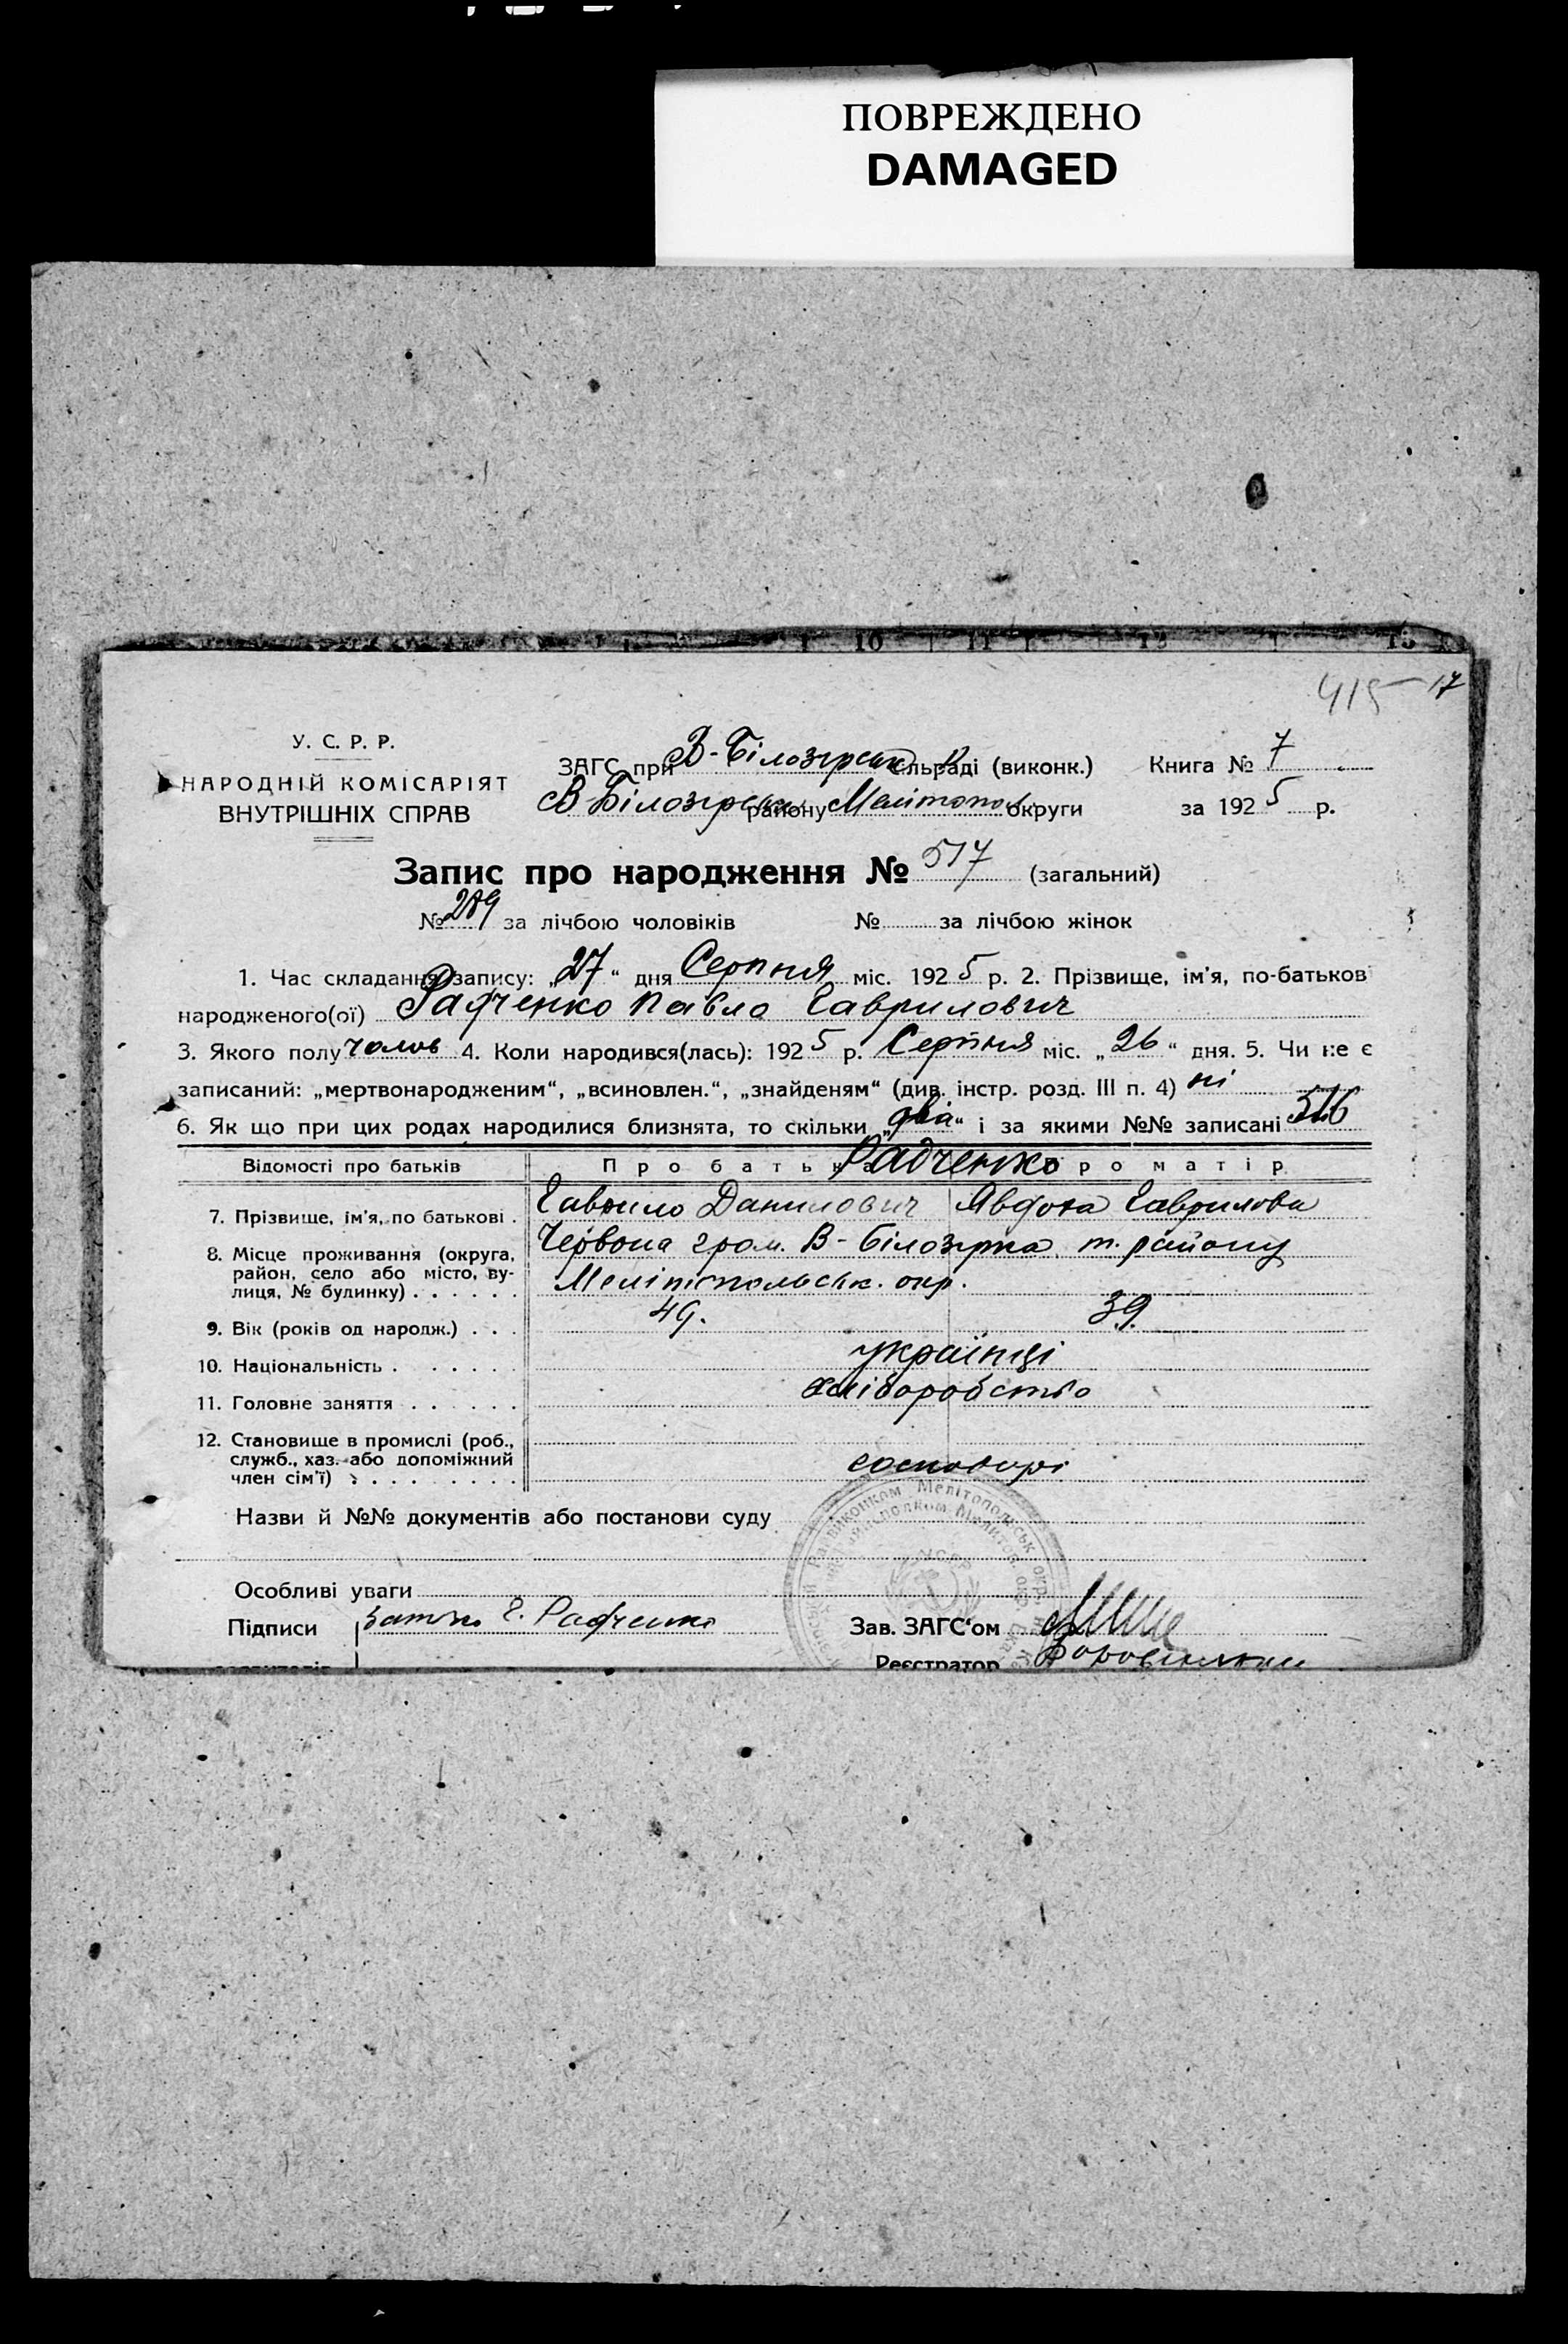 ПОВРЕЖДЕНО
DAMAGED
10 11 12 13
415 17
У. С. Р. Р.
НАРОДНІЙ КОМІСАРІЯТ
ВНУТРІШНІХ СПРАВ
ЗАГС при В-Білозірськ сільраді (виконк.) Книга № 7
В Білозірськ району Мелітополь округи за 1925 р.
Запис про народження № 517 (загальний)
№ 289 за лічбою чоловіків № за лічбою жінок
1. Час складання запису: „27“ дня Серпня міс. 1925 р. 2. Прізвище, ім'я, по-батьков
народженого(ої) Радченко Павло Гаврилович
3. Якого полу чолов 4. Коли народився(лась): 1925 р. Серпня міс. „26“ дня. 5. Чи не є
записаний: „мертвонародженим“, „всиновлен.“, „знайденям“ (див. інстр. розд. III п. 4) ні
6. Як що при цих родах народилися близнята, то скільки „два“ і за якими №№ записані 516
Відомості про батьків Про батька Радченко Про матір
7. Прізвище, ім'я, по батькові . Гаврило Данилович Явдоха Гаврилова
8. Місце проживання (округа, Червона гром. В-Білозірка т. району
район, село або місто, ву-
лиця, № будинку) . . . . . . Мелітопольськ. окр.
9. Вік (років од народж.) . . . 49. 39.
10. Національність . . . . . . українці
11. Головне заняття . . . . . . хліборобство
12. Становище в промислі (роб.,
служб., хаз. або допоміжний
член сім'ї) . . . . . . . . господарі
Назви й №№ документів або постанови суду
Особливі уваги
Підписи батько Г. Радченко Зав. ЗАГС'ом
Реєстратор